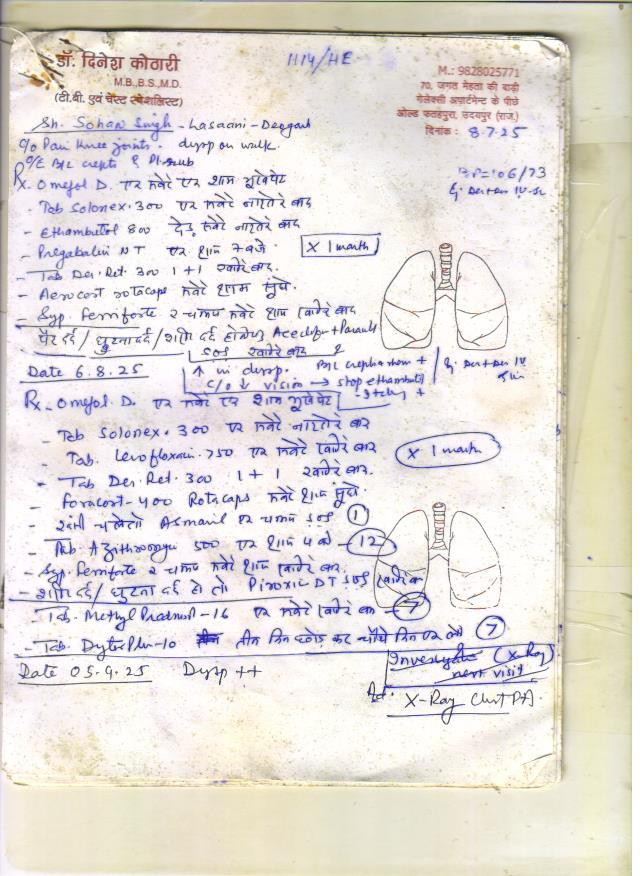 डॉ. दिनेश कोठारी
M.B.,B.S.,M.D.
(टी.बी. एवं चेस्ट स्पेशलिस्ट)
1114/HE
M.: 9828025771
70, जगत मेहता की बाड़ी
गेलेक्सी अपार्टमेन्ट के पीछे
ओल्ड फतहपुरा, उदयपुर (राज.)
दिनांक : 8.7.25
Sh. Sohan Singh - Lasaani - Deogarh
c/o Pain knee joints. dysp on walk.
O/E B/L crepts & Pl. rub
BP=106/73
Rx. Omefol D. एक सवेरे एक शाम भूखे पेट
- Tab Solonex. 300 एक सवेरे नाश्ते के बाद
- Ethambutol 800 डेढ़ सवेरे नाश्ते बाद
- Pregabalin NT एक शाम 7 बजे
X 1 month
- Tab Der. Ret. 300 1+1 खाने के बाद.
- Aerocort rotacaps सवेरे शाम सूंघे.
- Syp. Femiforte २ चम्मच सवेरे शाम खाने के बाद
पैर दर्द / घुटना दर्द / शरीर दर्द होने पर
SOS खाने के बाद
Date 6.8.25
↑ in dysp.
c/o ↓ vision → stop ethambutol
Itching +
Rx - Omefol D. एक सवेरे एक शाम भूखे पेट
- Tab Solonex. 300 एक सवेरे नाश्ते के बाद
- Tab. Levofloxacin. 750 एक सवेरे खाने के बाद
X 1 month
- Tab Der. Ret. 300 1+1 खाने के बाद.
- Foracort-400 Rotacaps सवेरे शाम सूंघे.
- खांसी चले तो Asmaril एक चम्मच SOS 1
- Tab. Azithromycin 500 एक शाम 4 बजे - 12
- Syp. Femiforte २ चम्मच सवेरे शाम खाने के बाद.
- शरीर दर्द / घुटना दर्द हो तो Piroxic DT SOS खाने के बाद
Tab. Methyl Prednisol-16 एक सवेरे खाने के बाद - 7
- Tab. Dytor Plus-10 तीन दिन छोड़ कर चौथे दिन एक लें 7
Investigate (X-Ray)
next visit
Date 05.9.25 Dysp ++
Adv. X-Ray Chest PA.